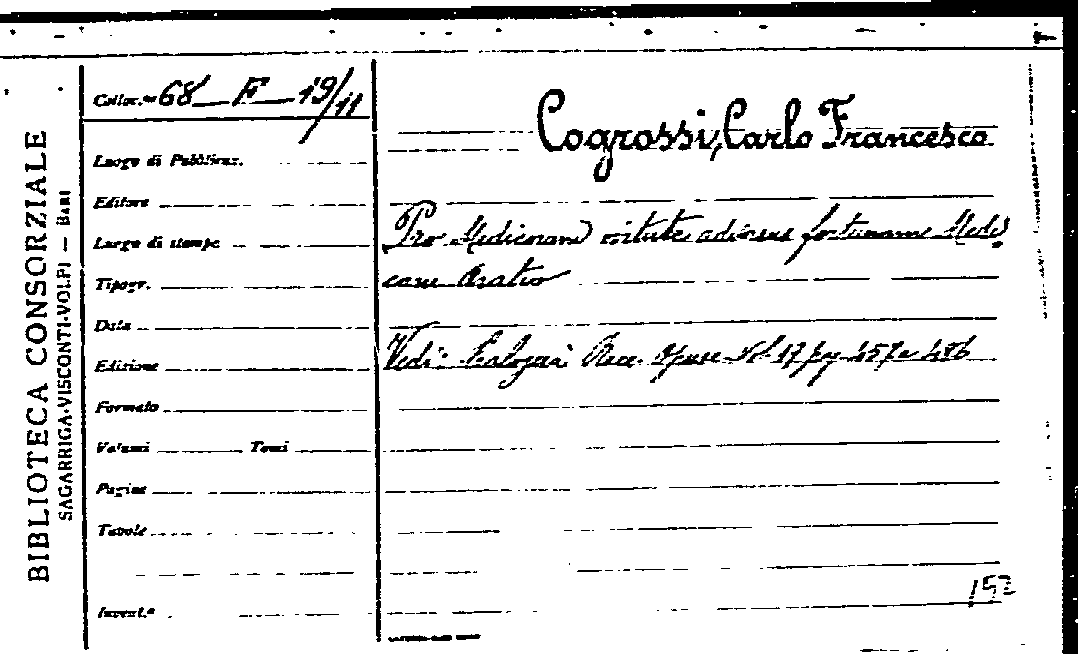 BIBLIOTECA CONSORZIALE
SAGARRIGA-VISCONTI-VOLPI — BARI
Colloc.ne 68 F 19/11
Luogo di Pubblicaz.
Editore
Luogo di stampa
Tipogr.
Data
Edizione
Formato
Volumi Tomi
Pagine
Tavole
Invent.°
Cogrossi, Carlo Francesco
Pro Medicorum virtute adversus fortunam Medi
cam Oratio
Vedi: Calogerà Racc. Opusc. Vol. 17 pag. 457 a 486
152